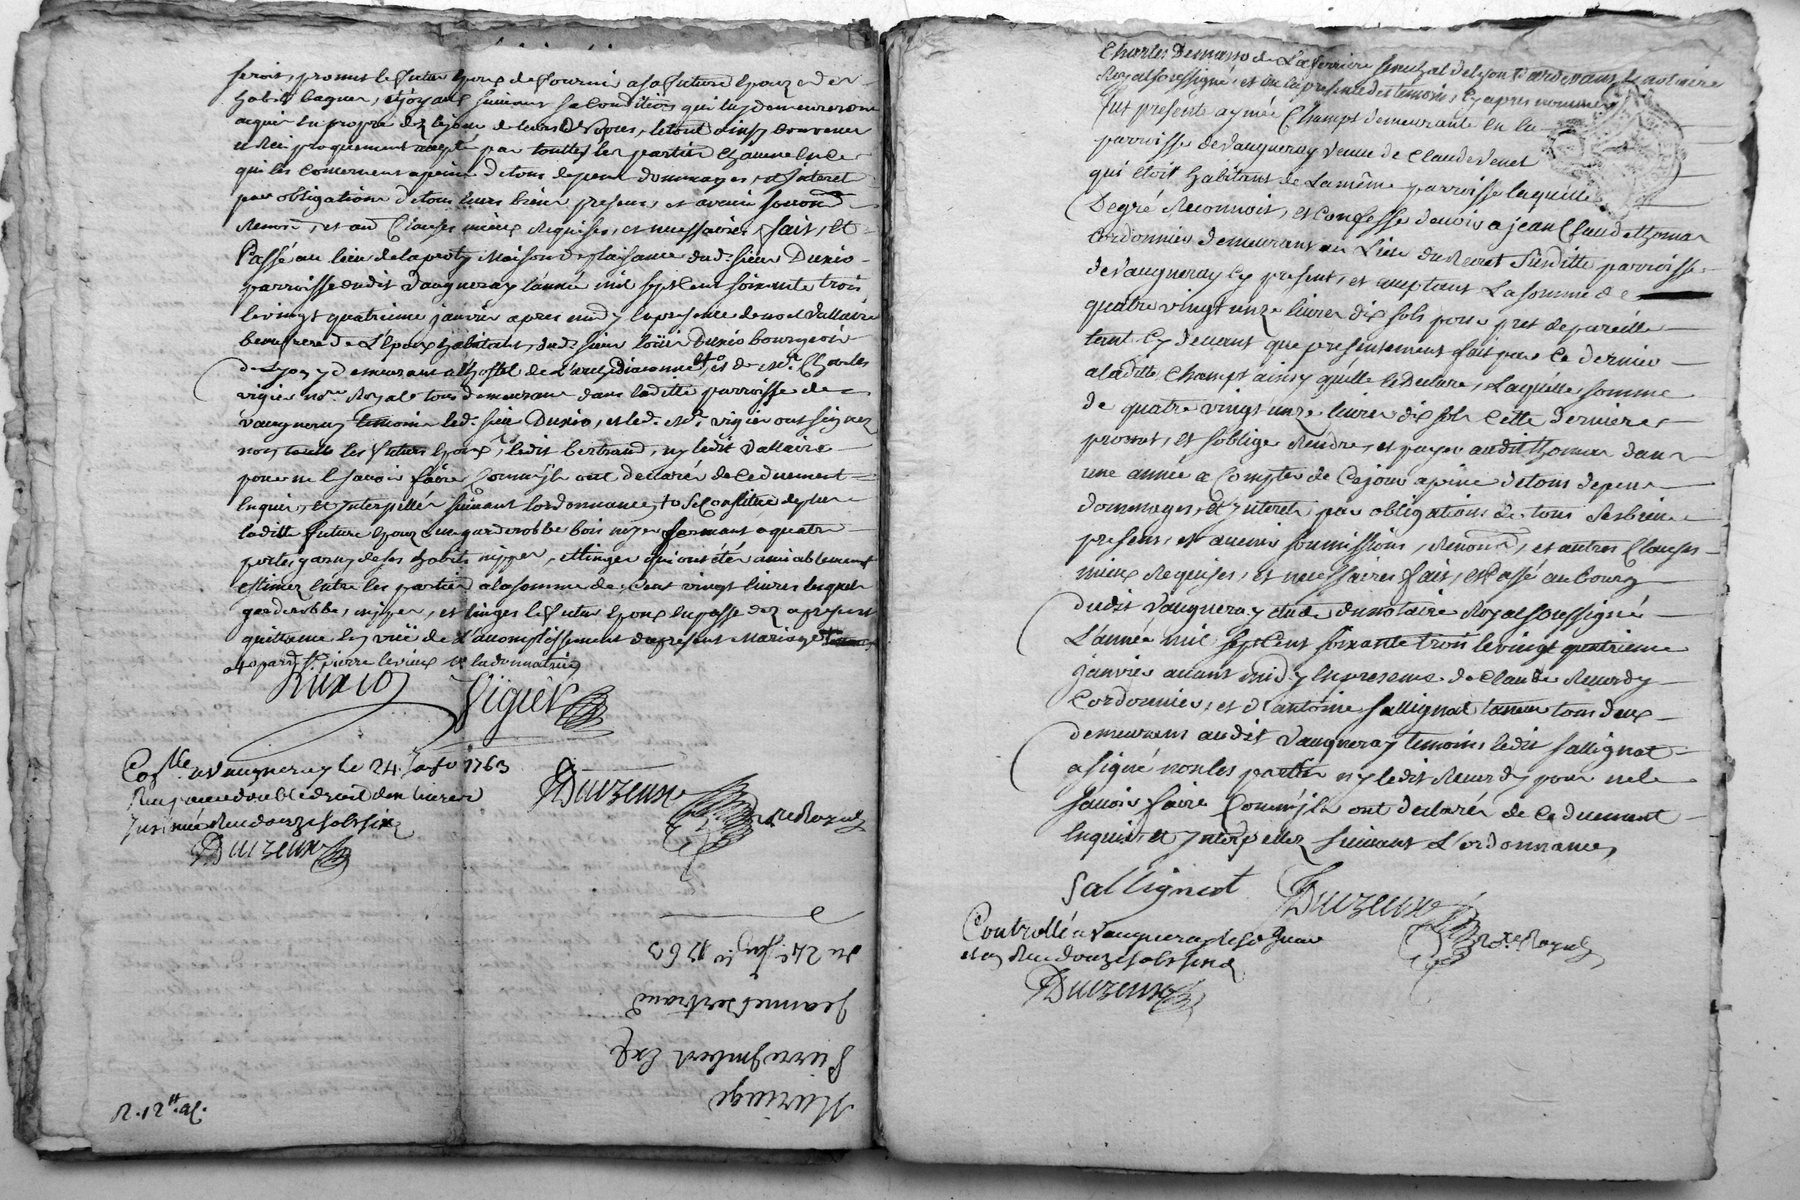 seroit, promit le futur Epoux de fournir a sa future Epouze de
habits bagues, et joyaux suivant sa condition qui luy demeureront
acquis en propre dez le jour de leurs Nopces, le tout ainsy convenu
et Reciproquement accepté par touttes les parties chacune en ce
qui les concernent a peine de tous depens dommages, et interet
par obligations de tous leurs biens presents, et avenir soumons
Renonc, et aux Clauses mieux Requises, et necessaires, fait, et
Passé au lieu de maison de plaisance dud. sieur Duxio
parroisse dudit Vaugneray l'année mil sept cent soixante trois
le vingt quatrieme janvier apres midy en presence de noel Vallaire
beaufrere de l'Epoux habitant, dud. sieur Duxio bourgeois
de Lyon y demeurant a l'hostel de et de Me. Charles
vigier nore. Royal tous demeurant dans laditte parroisse de
Vaugneray temoins led. sieur Duxio, et led. Me. vigier ont signez
non les futurs Epoux, ledit bertrand, ny ledit Vallaire
pour ne sçavoir faire Comm'jls ont declaré de ce duement
Enquis, et Interpellés suivant l'ordonnance, se Constitue deplus
laditte future Epouze une garderobbe bois noyer fermant a quatre
portes garny de ses habits nippes, et linges qui ont été amiablement
estimez entre les parties a la somme de Cent vingt livres lesquels
garderobbe, nippes, et linges le futur Epoux en passe dez a present
quittance en vüe de l'accomplissement du present Mariage
pierre
Duxio Vigier
Coll. a Vaugneray le 24 Janv. 1763
Reçu
Insinué Reçu douze sols six d
Duizeux
Duizeux nre Royal
Mariage
Pierre Imbert Exp
Jeanne Bertrand
du 24e. Janv. 1763
R. 12
Charles Demasso de La ferriere senechal de Lyon Pardevant le notaire
Royal soussigné, et en la presence des temoins cy apres nommes
fut presente aymée Champt demeurante en la
parroisse de Vaugneray veuve de Claude Venet
qui étoit habitant de La même parroisse laquelle
De gré Reconnoit, et confesse devoir a jean Claude thomas
Cordonnier demeurant au Lieu du Recret susditte parroisse
de Vaugneray Cy present, et acceptant La somme de
quatre vingt unze livres dix sols pour pret de pareille
tant cy devant que presentement fait par ce dernier
a laditte Champt ainsy qu'elle le Declare, Laquelle somme
de quatre vingt unze livres dix sols cette derniere
promet, et s'oblige Rendre, et payer audit thomas dans
une année a Compter de Cejour a peine de tous depens
dommages, et Interets par obligations de tous ses biens
presens, et avenir soumissions, Renonc., et autres Clauses
mieux Requises, et necessaires fait, et Passé au bourg
dudit Vaugneray etude du notaire Royal soussigné
L'année mil sept Cent soixante trois le vingt quatrieme
janvier avant midy en presence de Claude Reverdy
Cordonnier, et d'antoine sallignat taneur tous deux
demeurans audit Vaugneray temoins ledit sallignat
a signé non les parties ny ledit Reverdy pour ne le
sçavoir faire Comm'jls ont declaré de ce duement
Enquis, et Interpellez suivant L'ordonnance
Sallignat Duizeux nre Royal
Controllé a Vaugneray le
Reçu douze sols six d
Duizeux